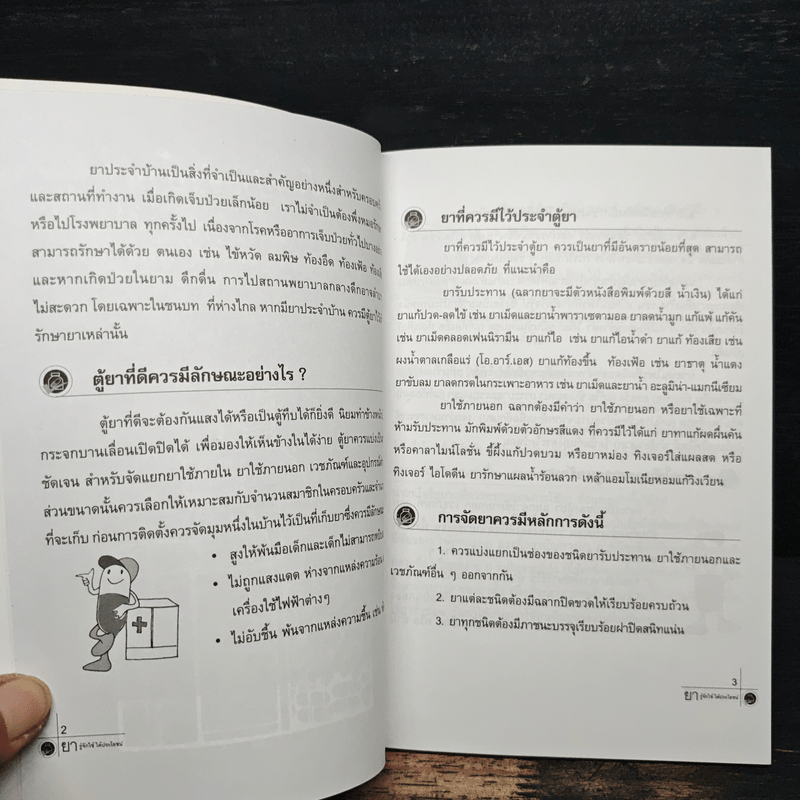 ยาประจำบ้านเป็นสิ่งที่จำเป็นและสำคัญอย่างหนึ่งสำหรับ
และสถานที่ทำงาน เมื่อเกิดเจ็บป่วยเล็กน้อย เราไม่จำเป็นต้องพึ่งหมอ
หรือไปโรงพยาบาล ทุกครั้งไป เนื่องจากโรคหรืออาการเจ็บป่วยทั่วไป
สามารถรักษาได้ด้วย ตนเอง เช่น ไข้หวัด ลมพิษ ท้องอืด ท้องเฟ้อ
และหากเกิดป่วยในยาม ดึกดื่น การไปสถานพยาบาลกลางดึกอาจ
ไม่สะดวก โดยเฉพาะในชนบท ที่ห่างไกล หากมียาประจำบ้าน ควรมีตู้ยา
รักษายาเหล่านั้น
ตู้ยาที่ดีควรมีลักษณะอย่างไร ?
ตู้ยาที่ดีจะต้องกันแสงได้หรือเป็นตู้ทึบได้ก็ยิ่งดี นิยมทำข้าง
กระจกบานเลื่อนเปิดปิดได้ เพื่อมองให้เห็นข้างในได้ง่าย ตู้ยาควรแบ่ง
ชัดเจน สำหรับจัดแยกยาใช้ภายใน ยาใช้ภายนอก เวชภัณฑ์และอุปกรณ์
ส่วนขนาดนั้นควรเลือกให้เหมาะสมกับจำนวนสมาชิกในครอบครัวและ
ที่จะเก็บ ก่อนการติดตั้งควรจัดมุมหนึ่งในบ้านไว้เป็นที่เก็บยาซึ่งควรมีลักษณะ
• สูงให้พ้นมือเด็กและเด็กไม่สามารถ
• ไม่ถูกแสงแดด ห่างจากแหล่งความร้อน
เครื่องใช้ไฟฟ้าต่างๆ
• ไม่อับชื้น พ้นจากแหล่งความชื้น เช่น
2
ยา รู้จักใช้ ได้ประโยชน์
ยาที่ควรมีไว้ประจำตู้ยา
ยาที่ควรมีไว้ประจำตู้ยา ควรเป็นยาที่มีอันตรายน้อยที่สุด สามารถ
ใช้ได้เองอย่างปลอดภัย ที่แนะนำคือ
ยารับประทาน (ฉลากยาจะมีตัวหนังสือพิมพ์ด้วยสี น้ำเงิน) ได้แก่
ยาแก้ปวด-ลดไข้ เช่น ยาเม็ดและยาน้ำพาราเซตามอล ยาลดน้ำมูก แก้แพ้ แก้คัน
เช่น ยาเม็ดคลอดเฟนนิรามีน ยาแก้ไอ เช่น ยาแก้ไอน้ำดำ ยาแก้ ท้องเสีย เช่น
ผงน้ำตาลเกลือแร่ (โอ.อาร์.เอส) ยาแก้ท้องขึ้น ท้องเฟ้อ เช่น ยาธาตุ น้ำแดง
ยาขับลม ยาลดกรดในกระเพาะอาหาร เช่น ยาเม็ดและยาน้ำ อะลูมิน่า-แมกนีเซียม
ยาใช้ภายนอก ฉลากต้องมีคำว่า ยาใช้ภายนอก หรือยาใช้เฉพาะที่
ห้ามรับประทาน มักพิมพ์ด้วยตัวอักษรสีแดง ที่ควรมีไว้ได้แก่ ยาทาแก้ผดผื่นคัน
หรือคาลาไมน์โลชั่น ขี้ผึ้งแก้ปวดบวม หรือยาหม่อง ทิงเจอร์ใส่แผลสด หรือ
ทิงเจอร์ ไอโดดีน ยารักษาแผลน้ำร้อนลวก เหล้าแอมโมเนียหอมแก้วิงเวียน
การจัดยาควรมีหลักการดังนี้
1. ควรแบ่งแยกเป็นช่องของชนิดยารับประทาน ยาใช้ภายนอกและ
เวชภัณฑ์อื่น ๆ ออกจากกัน
2. ยาแต่ละชนิดต้องมีฉลากปิดขวดให้เรียบร้อยครบถ้วน
3. ยาทุกชนิดต้องมีภาชนะบรรจุเรียบร้อยฝาปิดสนิทแน่น
3
ยา รู้จักใช้ ได้ประโยชน์